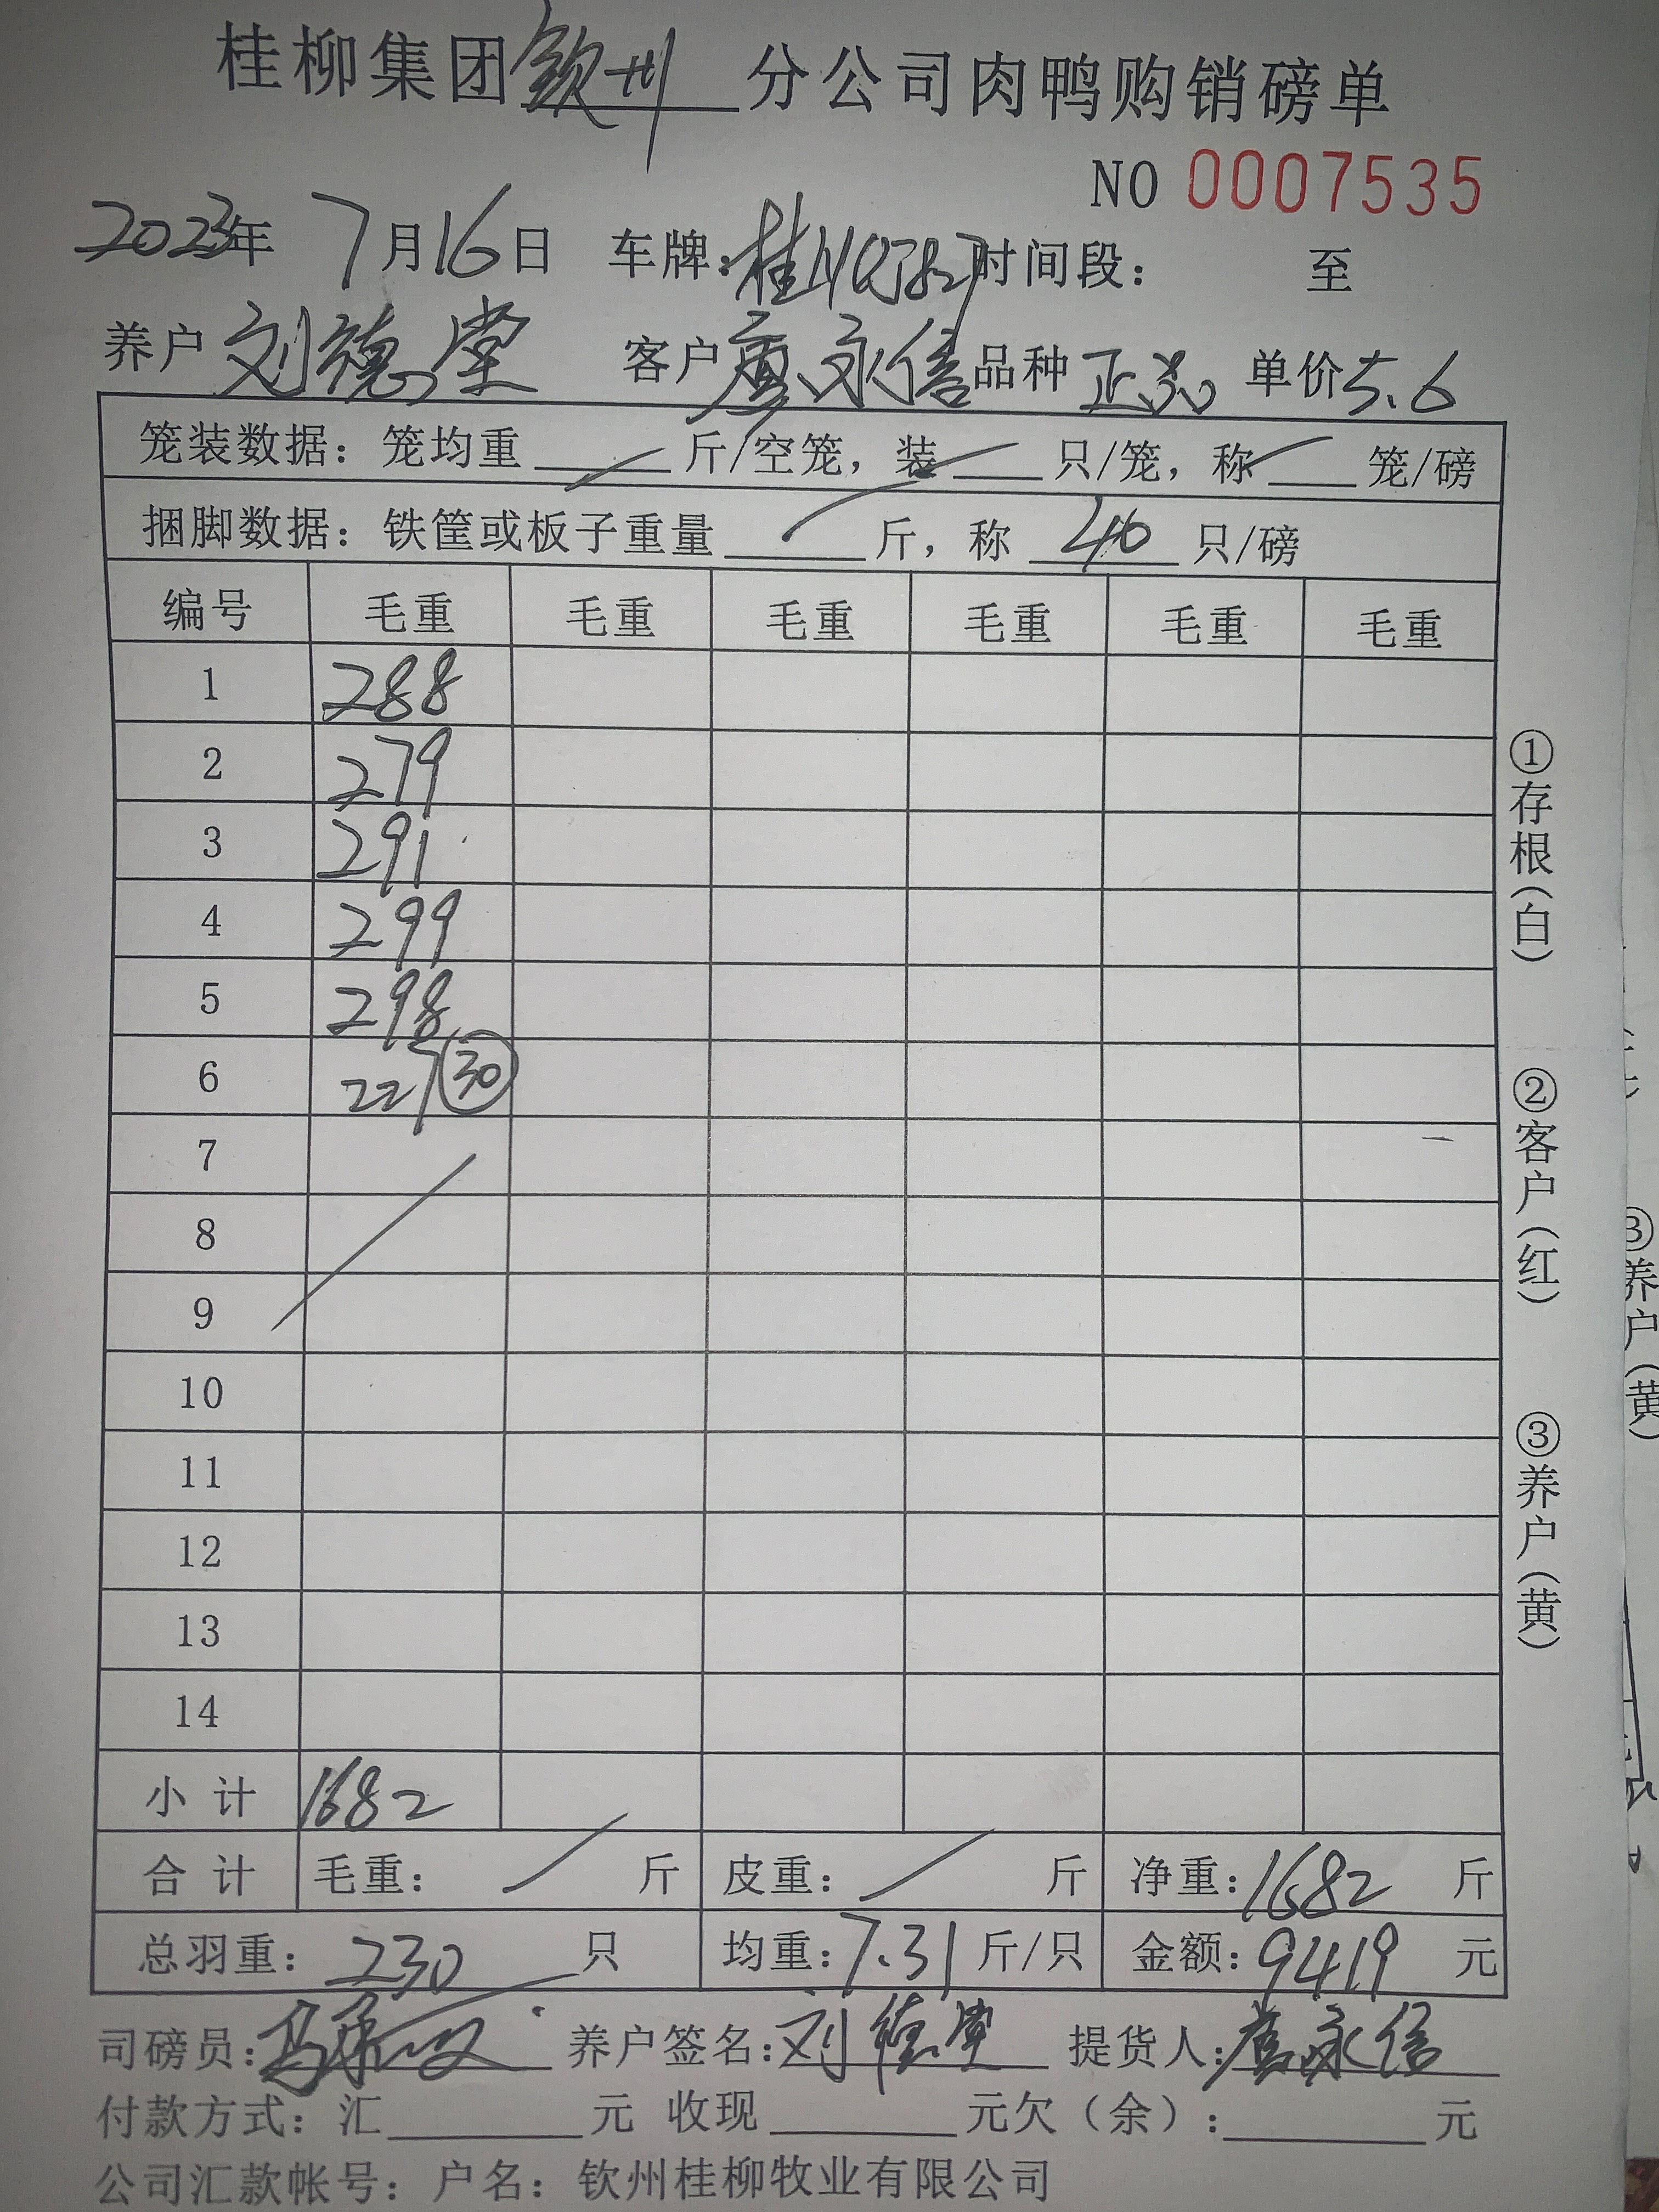 桂柳集团钦州分公司肉鸭购销磅单
NO 0007535
2023年 7月16日 车牌:桂 时间段: 至
养户 刘德堂 客户 廖永信 品种 正 单价 5.6
笼装数据: 笼均重 斤/空笼, 装 只/笼, 称 笼/磅
捆脚数据: 铁筐或板子重量 斤, 称 40 只/磅
编号 毛重 毛重 毛重 毛重 毛重 毛重
1 288
2 279
3 291
4 299
5 298
6 227 30
7
8
9
10
11
12
13
14
小计 1682
合计 毛重: 斤 皮重: 斤 净重: 1682 斤
总羽重: 230 只 均重: 7.31 斤/只 金额: 9419 元
司磅员: 养户签名: 刘德堂 提货人: 廖永信
付款方式: 汇 元 收现 元欠(余): 元
公司汇款帐号: 户名: 钦州桂柳牧业有限公司
①存根(白)
②客户(红)
③养户(黄)
③养户(黄)